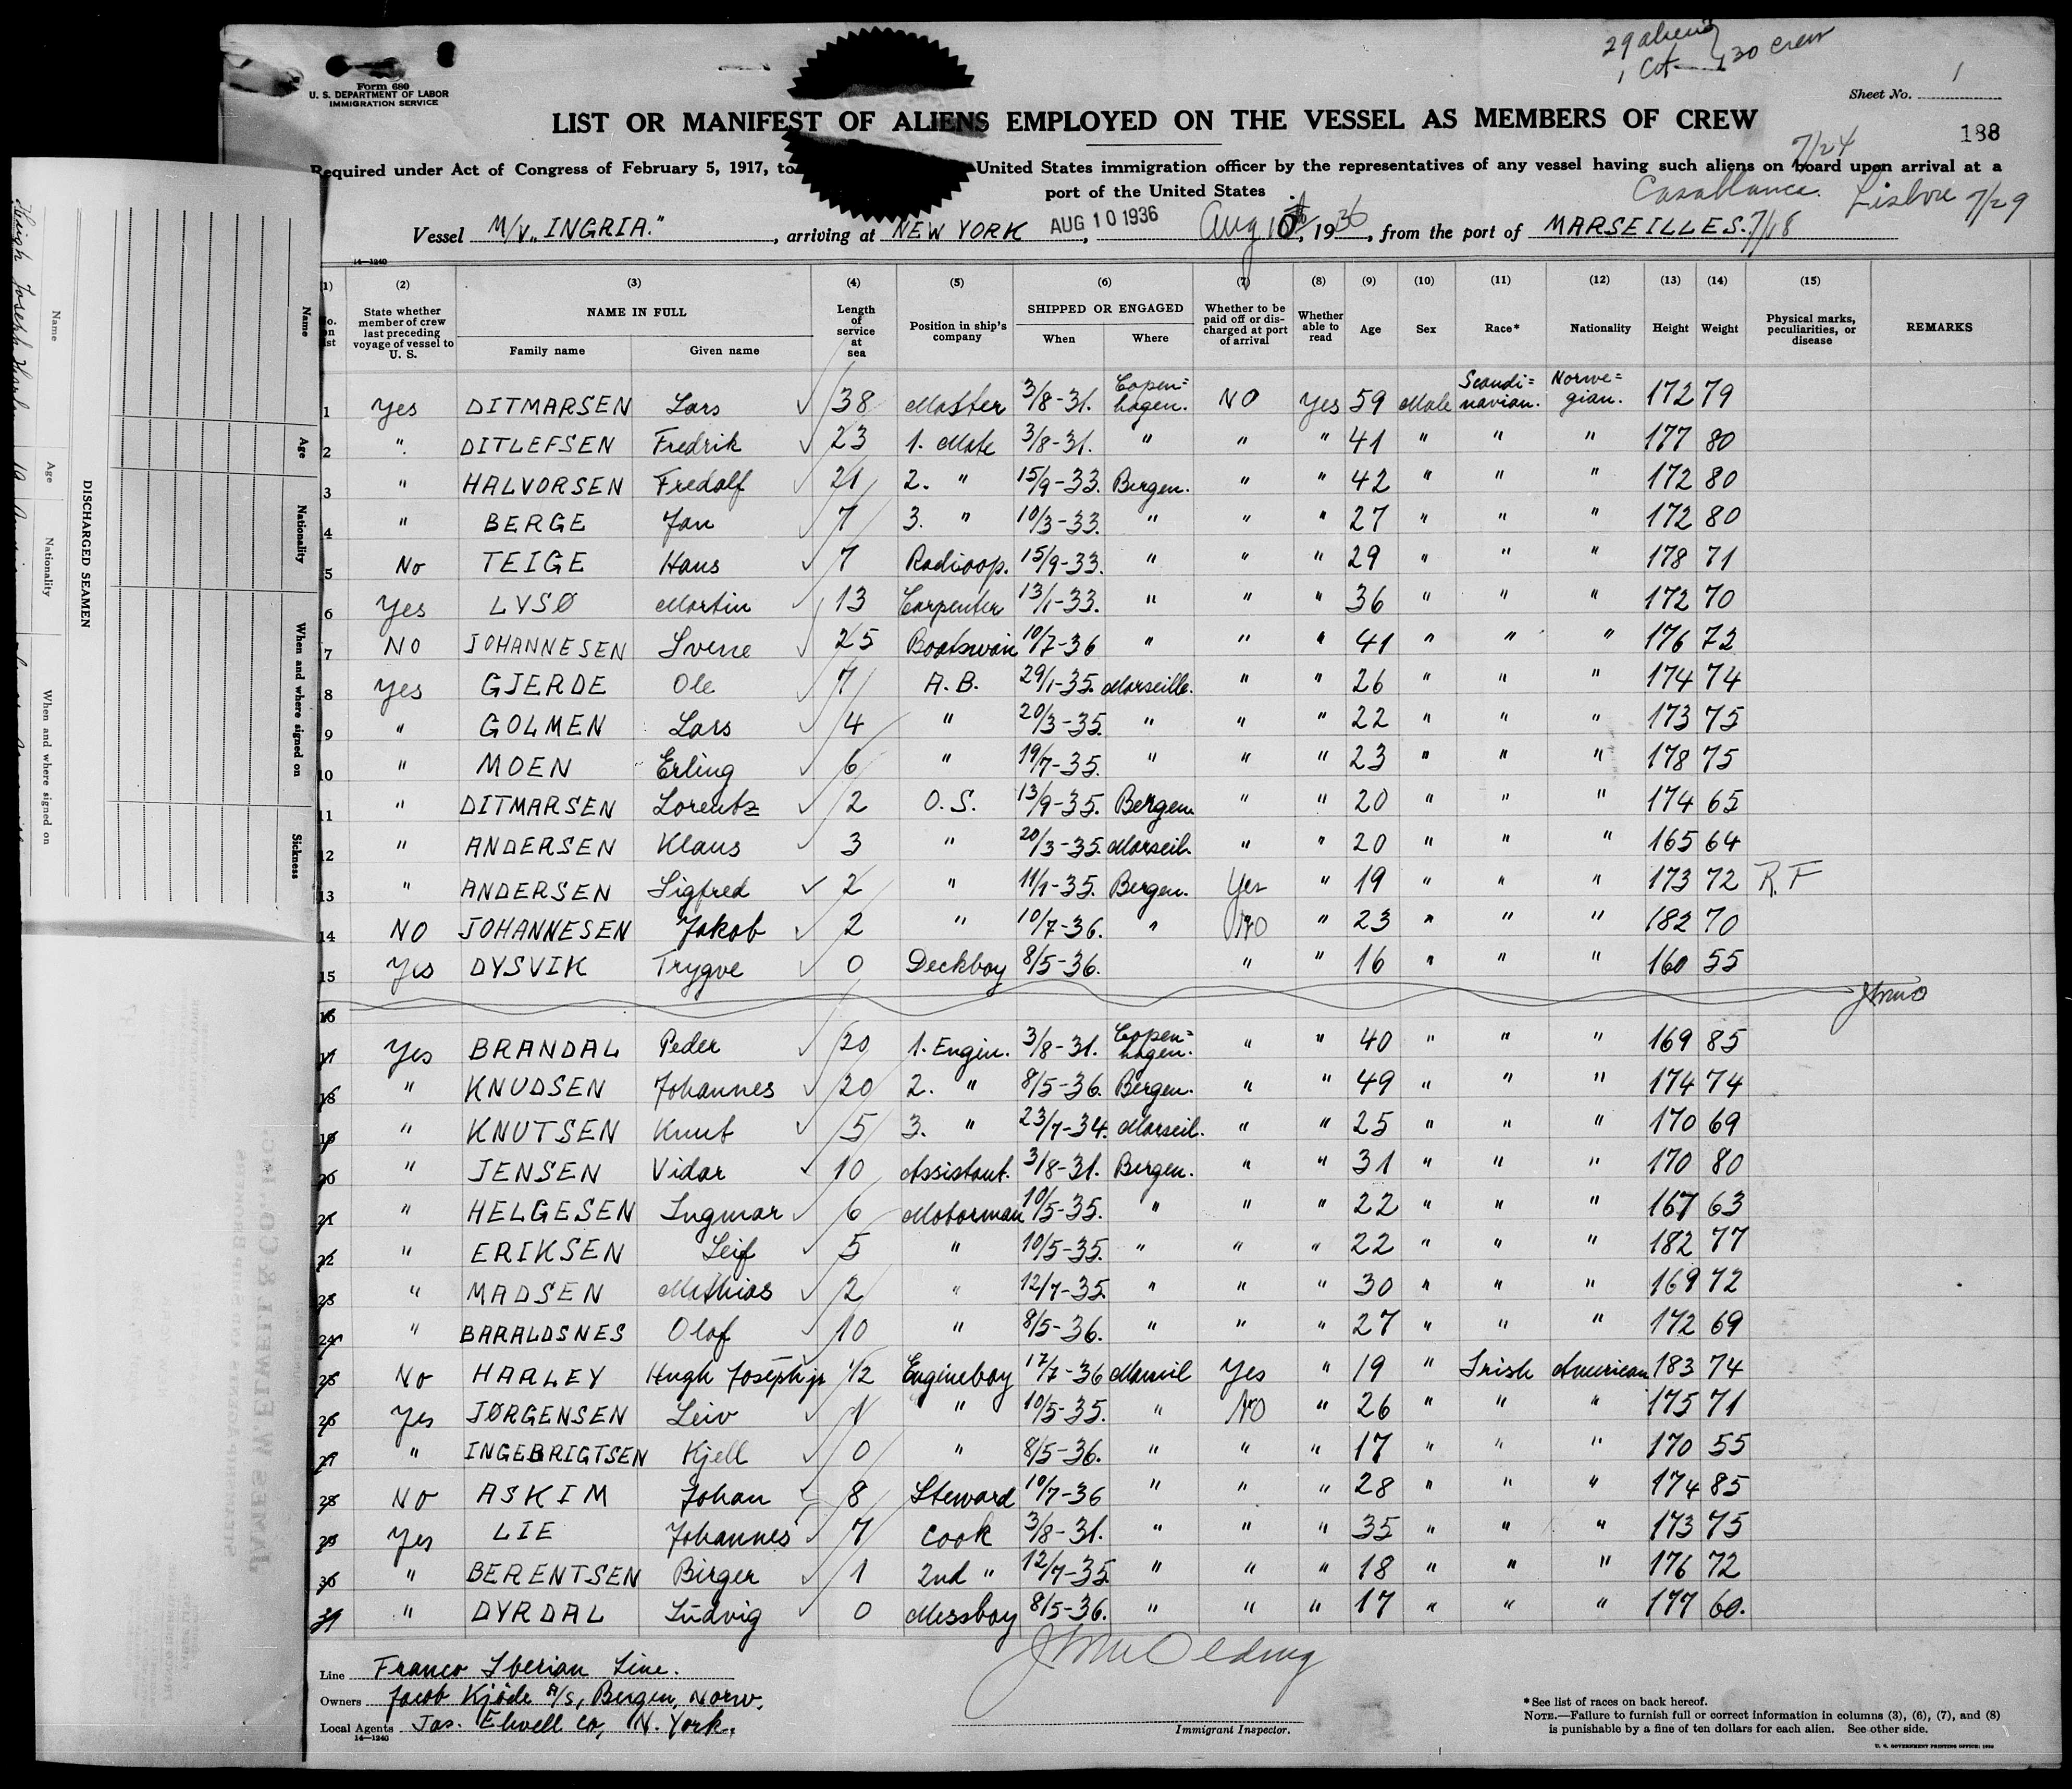 29 aliens
1 Cit. 30 crew
Form 680
U. S. DEPARTMENT OF LABOR
IMMIGRATION SERVICE
Sheet No. 1
LIST OR MANIFEST OF ALIENS EMPLOYED ON THE VESSEL AS MEMBERS OF CREW
188
Required under Act of Congress of February 5, 1917, to United States immigration officer by the representatives of any vessel having such aliens on board upon arrival at a
port of the United States
7/24
Casablanca. Lisbon 7/29
Vessel M/V „INGRIA." , arriving at NEW YORK AUG 10 1936 , Aug 10th, 1936, from the port of MARSEILLES. 7/18
14—1240
(1) (2) (3) (4) (5) (6) (7) (8) (9) (10) (11) (12) (13) (14) (15)
No. on list
State whether member of crew last preceding voyage of vessel to U. S.
NAME IN FULL
Family name Given name
Length of service at sea
Position in ship's company
SHIPPED OR ENGAGED
When Where
Whether to be paid off or discharged at port of arrival
Whether able to read
Age
Sex
Race*
Nationality
Height
Weight
Physical marks, peculiarities, or disease
REMARKS
1 Yes DITMARSEN Lars 38 Master 3/8-31. Copen=hagen. NO Yes 59 Male Scandi=navian. Norwe=gian. 172 79
2 " DITLEFSEN Fredrik 23 1. Mate 3/8-31. " " " 41 " " " 177 80
3 " HALVORSEN Fredolf 21 2. " 15/9-33. Bergen. " " 42 " " " 172 80
4 " BERGE Jan 7 3. " 10/3-33. " " " 27 " " " 172 80
5 No TEIGE Hans 7 Radioop. 15/9-33. " " " 29 " " " 178 71
6 Yes LVSØ Martin 13 Carpenter 13/1-33. " " " 36 " " " 172 70
7 NO JOHANNESEN Sverre 25 Boatswain 10/7-36 " " " 41 " " " 176 72
8 Yes GJERDE Ole 7 A. B. 29/1-35. Marseille. " " 26 " " " 174 74
9 " GOLMEN Lars 4 " 20/3-35. " " " 22 " " " 173 75
10 " MOEN Erling 6 " 19/7-35. " " " 23 " " " 178 75
11 " DITMARSEN Lorentz 2 O. S. 13/9-35. Bergen " " 20 " " " 174 65
12 " ANDERSEN Klaus 3 " 20/3-35. Marseil. " " 20 " " " 165 64
13 " ANDERSEN Sigfred 2 " 11/1-35. Bergen. Yes " 19 " " " 173 72 R. F
14 NO JOHANNESEN Jakob 2 " 10/7-36. " NO " 23 " " " 182 70
15 Yes DYSVIK Trygve 0 Deckboy 8/5-36. " " 16 " " " 160 55
16
17 Yes BRANDAL Peder 20 1. Engin. 3/8-31. Copen=hagen. " " 40 " " " 169 85
18 " KNUDSEN Johannes 20 2. " 8/5-36. Bergen. " " 49 " " " 174 74
19 " KNUTSEN Knut 5 3. " 23/7-34. Marseil. " " 25 " " " 170 69
20 " JENSEN Vidar 10 Assistant. 3/8-31. Bergen. " " 31 " " " 170 80
21 " HELGESEN Ingmar 6 Motorman 10/5-35. " " " 22 " " " 167 63
22 " ERIKSEN Leif 5 " 10/5-35. " " " 22 " " " 182 77
23 " MADSEN Mathias 2 " 12/7-35. " " " 30 " " " 169 72
24 " BARALDSNES Olaf 10 " 8/5-36. " " " 27 " " " 172 69
25 No HARLEY Hugh Joseph jr 1/2 Engineboy 17/7-36 Yes " 19 " Irish American 183 74
26 Yes JØRGENSEN Leiv 1 " 10/5-35. " NO " 26 " " " 175 71
27 " INGEBRIGTSEN Kjell 0 " 8/5-36. " " " 17 " " " 170 55
28 NO ASKIM Johan 8 Steward 10/7-36 " " " 28 " " " 174 85
29 Yes LIE Johannes 7 Cook 3/8-31. " " " 35 " " " 173 75
30 " BERENTSEN Birger 1 2nd " 12/7-35. " " " 18 " " " 176 72
31 " DYRDAL Ludvig 0 Messboy 8/5-36. " " " 17 " " " 177 60.
Line Franco Iberian Line.
Owners Jacob Kjöde A/S, Bergen, Norw.
Local Agents Jas. Elwell Co, N. York.
14—1240
Immigrant Inspector.
*See list of races on back hereof.
NOTE.—Failure to furnish full or correct information in columns (3), (6), (7), and (8)
is punishable by a fine of ten dollars for each alien. See other side.
U. S. GOVERNMENT PRINTING OFFICE: 1930
DISCHARGED SEAMEN
Name Age Nationality When and where signed on Sickness
Name Age Nationality When and where signed on
JAMES W. ELWELL & CO., INC.
STEAMSHIP AGENTS AND SHIP BROKERS